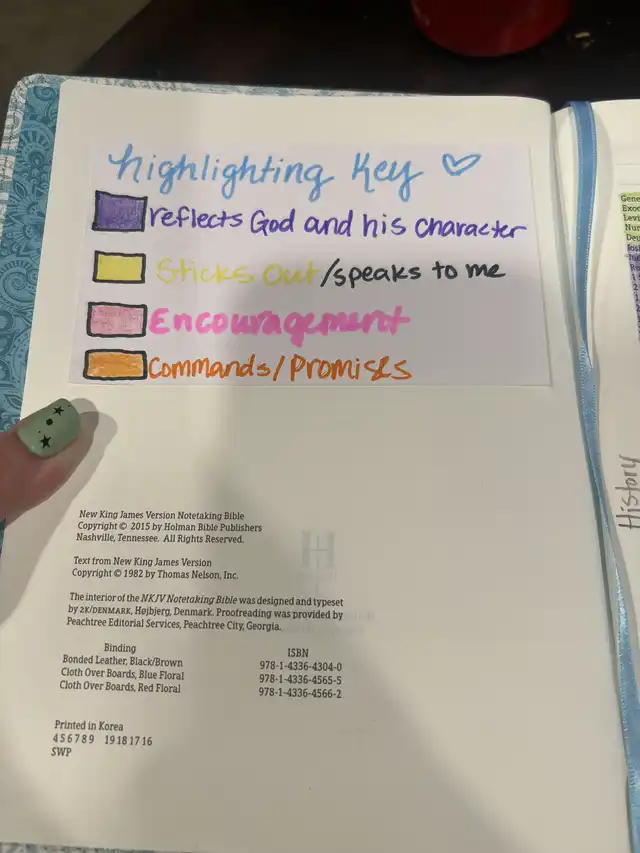 highlighting Key
reflects God and his character
Sticks Out/speaks to me
Encouragement
Commands/Promises
New King James Version Notetaking Bible
Copyright © 2015 by Holman Bible Publishers
Nashville, Tennessee. All Rights Reserved.
Text from New King James Version
Copyright © 1982 by Thomas Nelson, Inc.
The interior of the NKJV Notetaking Bible was designed and typeset
by 2K/DENMARK, Højbjerg, Denmark. Proofreading was provided by
Peachtree Editorial Services, Peachtree City, Georgia.
Binding ISBN
Bonded Leather, Black/Brown 978-1-4336-4304-0
Cloth Over Boards, Blue Floral 978-1-4336-4565-5
Cloth Over Boards, Red Floral 978-1-4336-4566-2
Printed in Korea
4 5 6 7 8 9 19 18 17 16
SWP
History